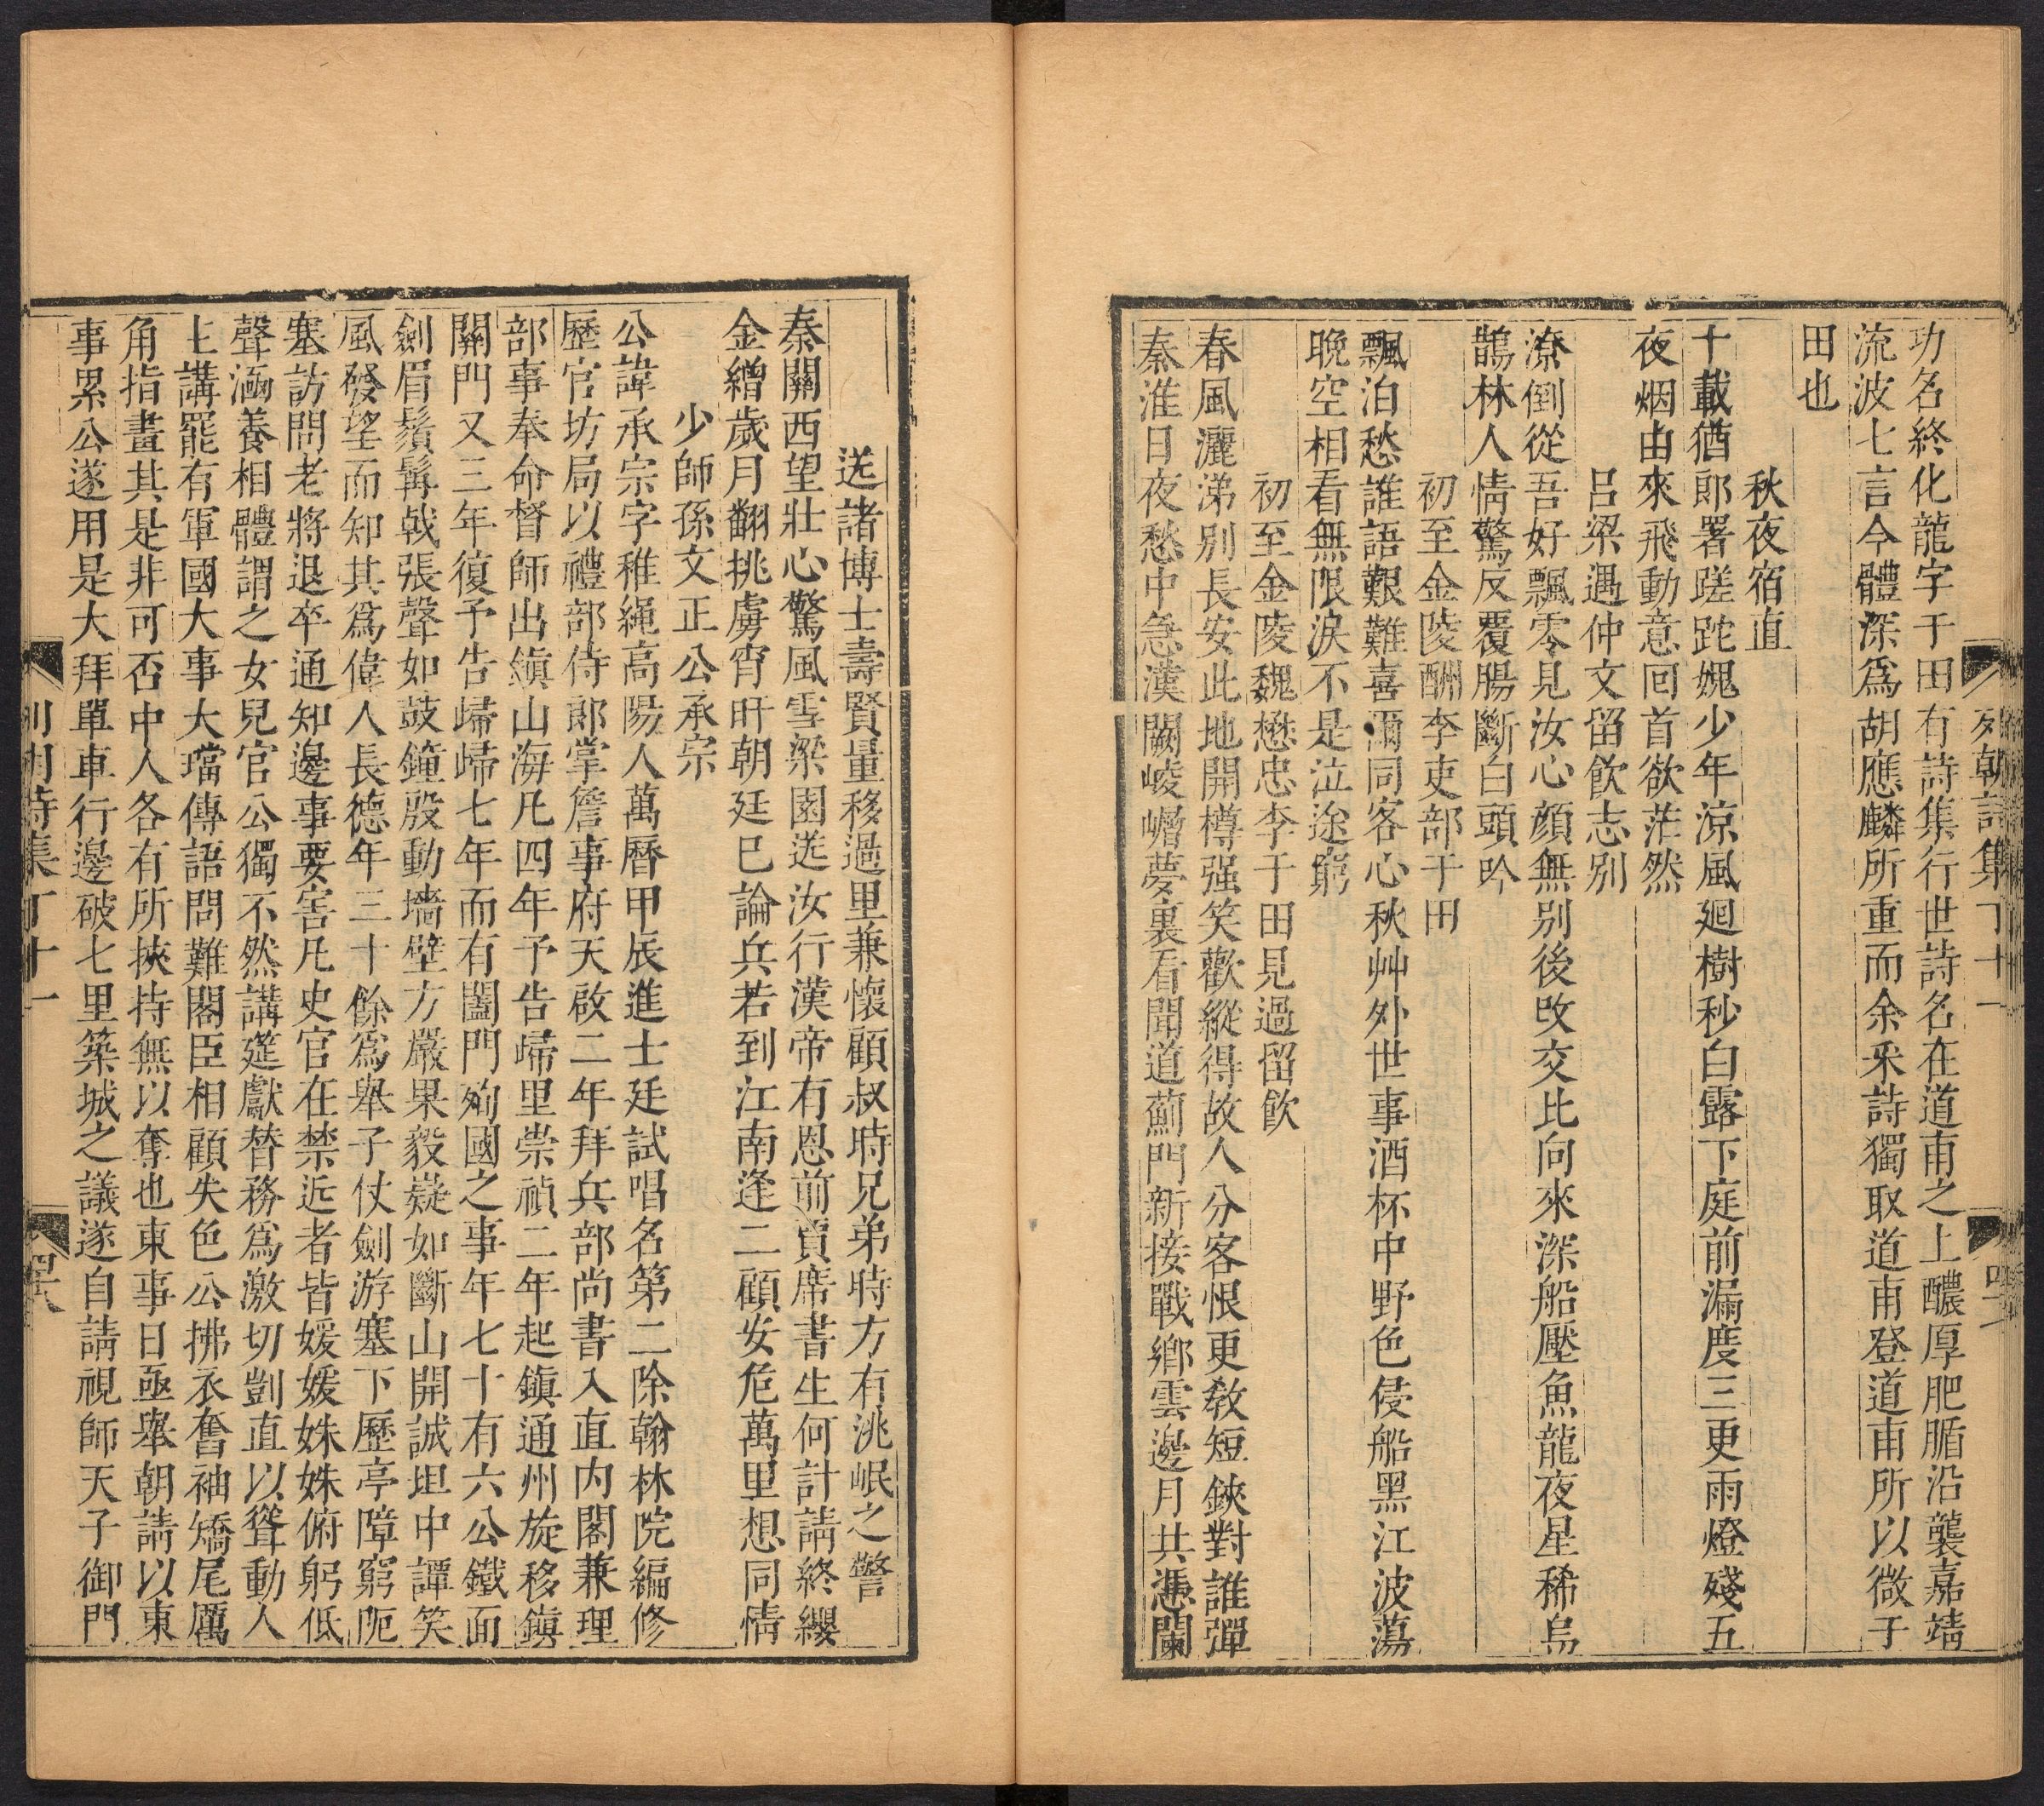 列朝詩集丁十一
功名終化龍字于田有詩集行世詩名在道甫之上醲厚肥腯沿襲嘉靖
流波七言今體深爲胡應麟所重而余采詩獨取道甫登道甫所以微于
田也
秋夜宿直
十載猶郎署蹉跎媿少年涼風廻樹秒白露下庭前漏度三更雨燈殘五
夜烟由來飛動意回首欲茫然
呂梁遇仲文留飲志别
潦倒從吾好飄零見汝心顏無别後改交比向來深船壓魚龍夜星稀烏
鵲林人情驚反覆腸斷白頭吟
初至金陵酬李吏部于田
飄泊愁誰語艱難喜爾同客心秋艸外世事酒杯中野色侵船黑江波蕩
晚空相看無限淚不是泣途窮
初至金陵魏懋忠李于田見過留飲
春風灑涕别長安此地開樽强笑歡縱得故人分客恨更教短鋏對誰彈
秦淮日夜愁中急漢闕崚嶒夢裏看聞道薊門新接戰鄉雲邊月共憑闌
送諸博士壽賢量移過里兼懷顧叔時兄弟時方有洮岷之警
秦關西望壯心驚風雪梁園送汝行漢帝有恩前賈席書生何計請終纓
金繒歲月翻挑虜宵旰朝廷已論兵若到江南逢二顧安危萬里想同情
少師孫文正公承宗
公諱承宗字稚繩高陽人萬曆甲辰進士廷試唱名第二除翰林院編修
歷官坊局以禮部侍郎掌詹事府天啟二年拜兵部尚書入直内閣兼理
部事奉命督師出鎭山海凡四年予告歸里崇禎二年起鎭通州旋移鎭
關門又三年復予告歸歸七年而有闔門殉國之事年七十有六公鐵面
劍眉鬚髯戟張聲如鼓鐘殷動墻壁方嚴果毅嶷如斷山開誠坦中譚笑
風發望而知其爲偉人長德年三十餘爲舉子仗劍游塞下歷亭障窮阨
塞訪問老將退卒通知邊事要害凡史官在禁近者皆媛媛姝姝俯躬低
聲涵養相體謂之女兒官公獨不然講筵獻替務爲激切剴直以聳動人
上講罷有軍國大事大璫傳語問難閣臣相顧失色公拂衣奮袖矯尾厲
角指畫其是非可否中人各有所挾持無以奪也東事日亟舉朝請以東
事累公遂用是大拜單車行邊破七里築城之議遂自請視師天子御門
列朝詩集丁十一